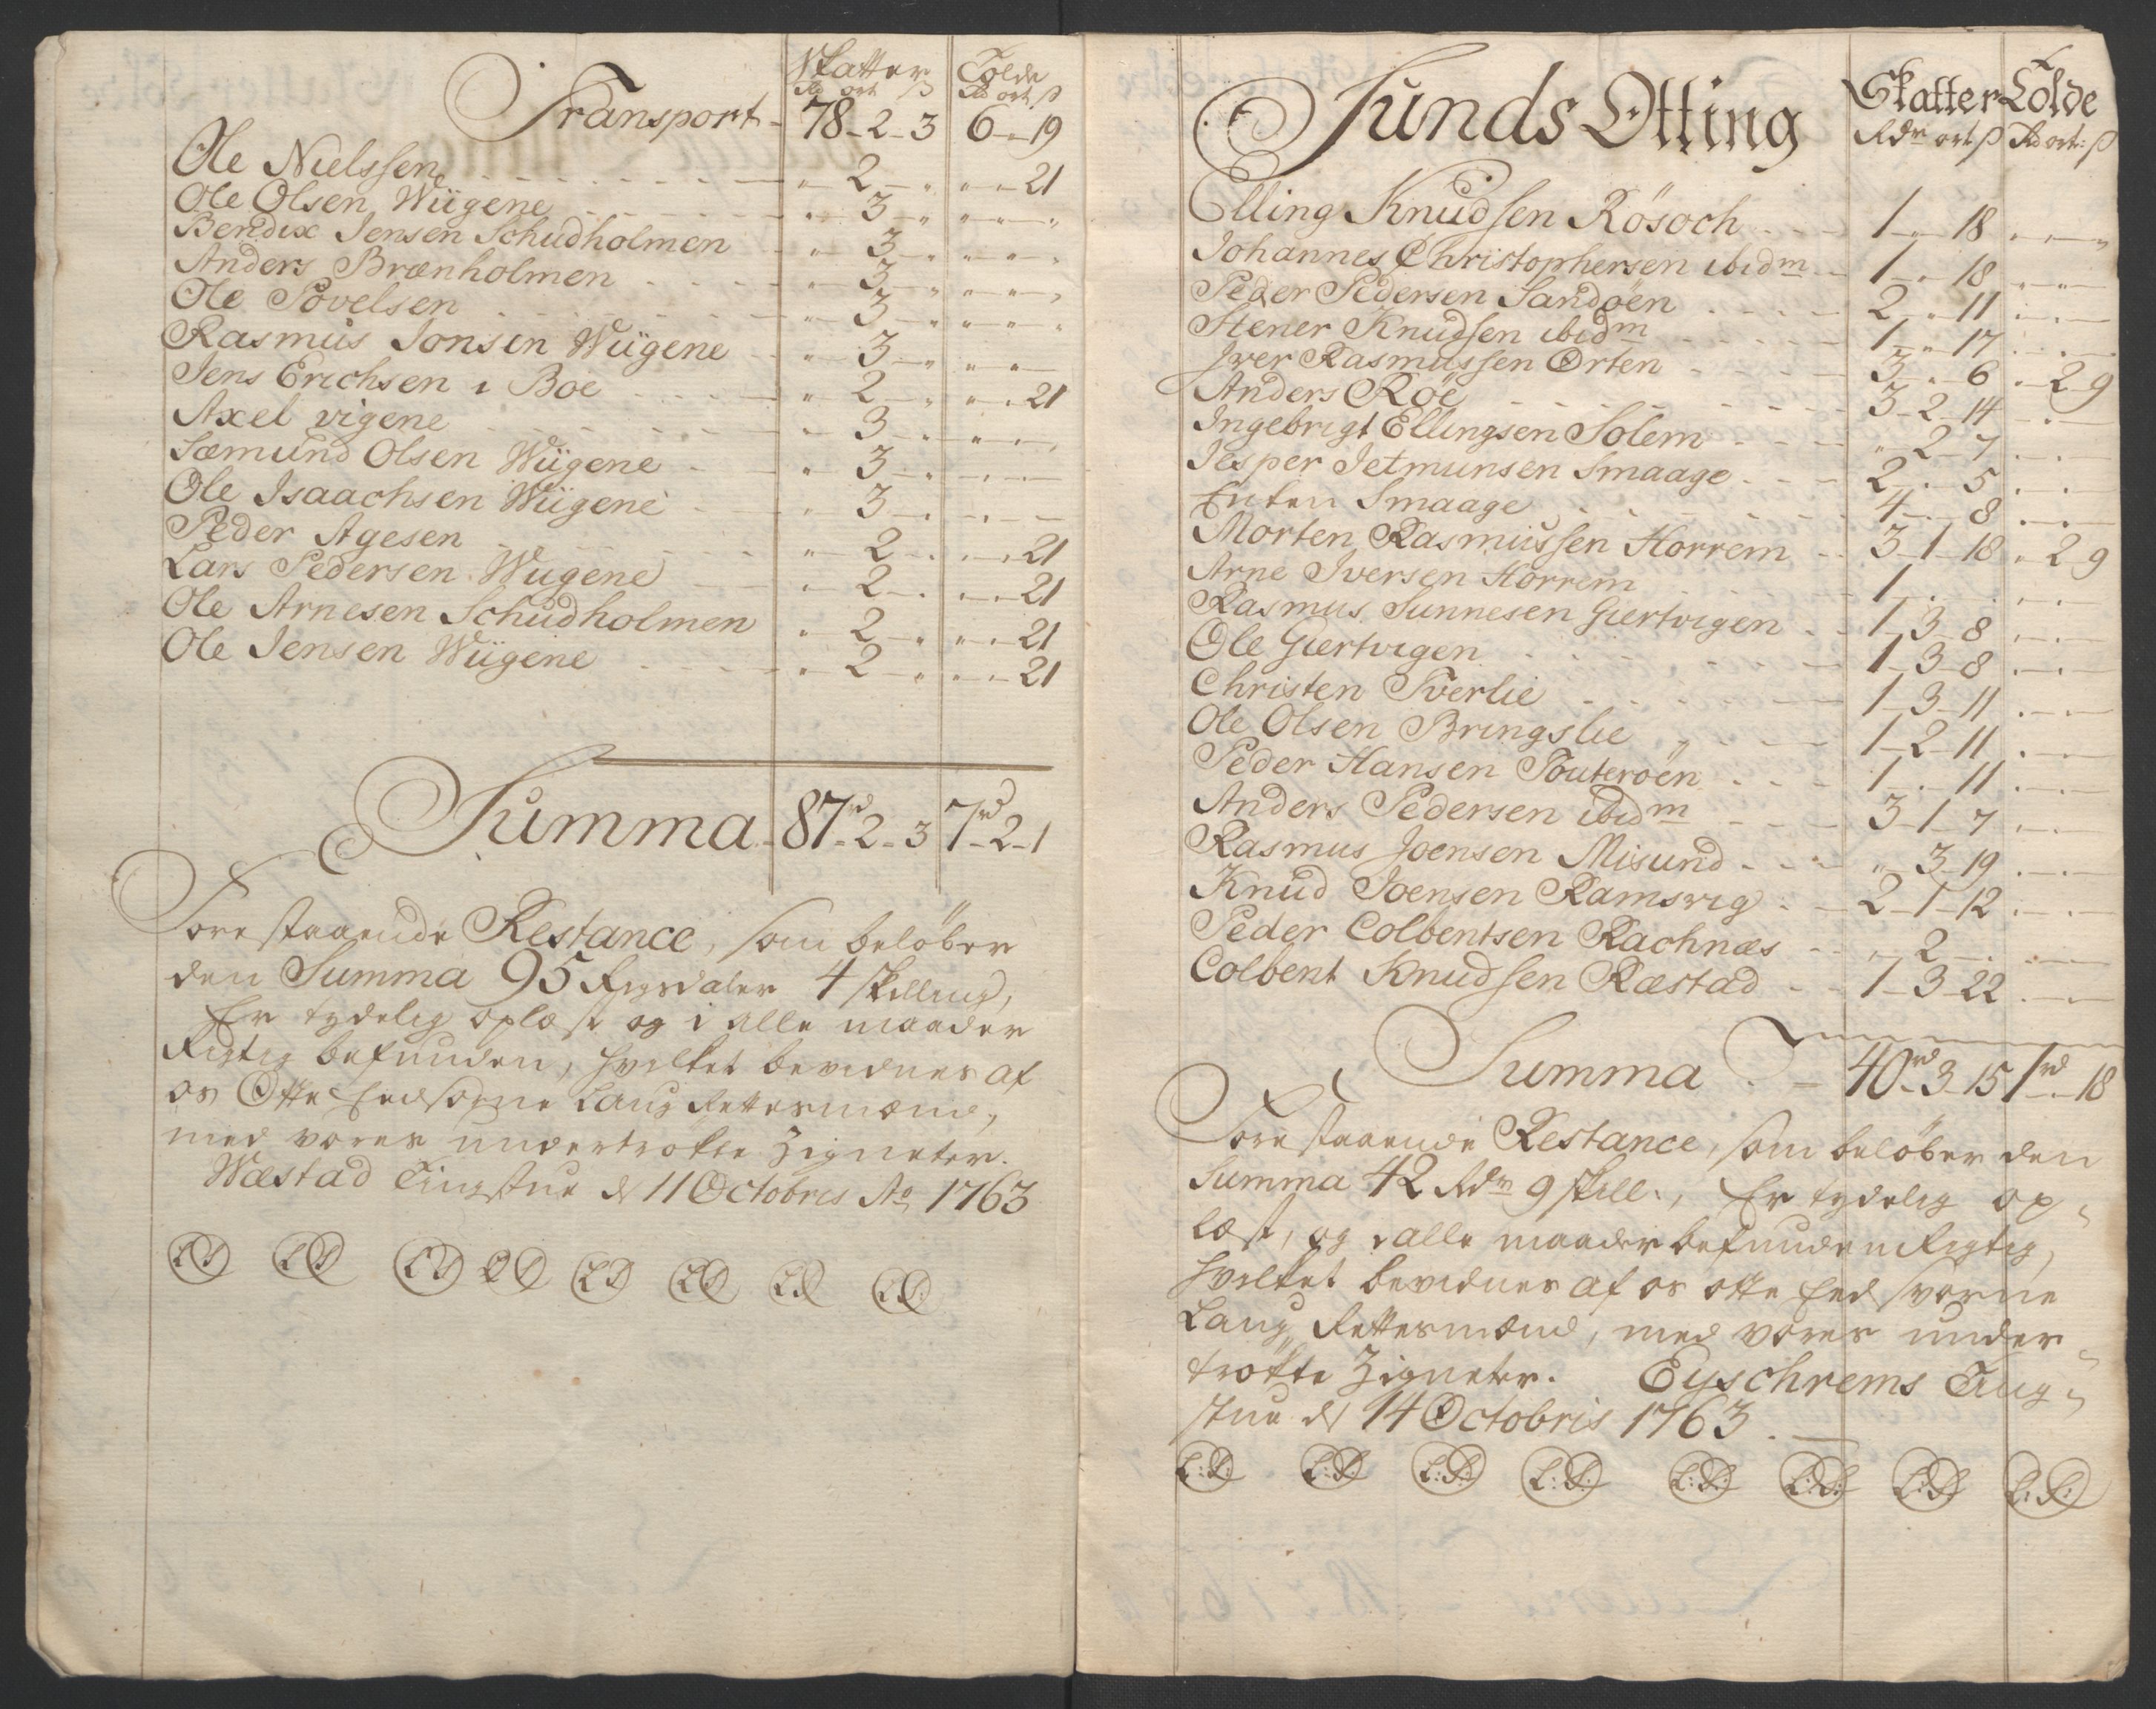 Skatter Tolde
Rd ort ß Rd ort ß
Transport - 78 - 2 - 3 6 - " - 19
Ole Nielssen " 2 - " " - " - 21
Ole Olsen Wügene " 3 - " " - " - "
Bendix Jensen Schudholmen " 3 - " " - " - "
Anders Brænholmen " 3 - " " - " - "
Ole Povelsen " 3 - " " - " - "
Rasmus Jonsen Wügene " 3 - " " - " -
Jens Erichsen i Boe " 2 - " " - " - 21
Axel vigene " 3 - " " - " - "
Sæmund Olsen Wügene " 3 - "
Ole Isaachsen Wügene " 3 - "
Peder Agesen " 2 - " " - " - 21
Lars Pedersen Wugene " 2 - " " - " - 21
Ole Arnesen Schudholmen " 2 - " " - " - 21
Ole Jensen Wügene " 2 - " " - " - 21
Summa - 87rd - 2 - 3 7rd - 2 - 1
Forestaaende Restance, som beløber
den Summa 95 Rigsdaler 4 skilling,
Er tydelig oplæst og i alle maader
Rigtig befunden, hvilket bevidnes af
os Otte Eedsorne Laug Rettesmænd,
med vores undertrøkte Zigneter.
Wæstad Tingstue d 11 Octobris Ao 1763
LS LS LS LS LS LS LS LS
Sunds Otting Skatter Tolde
Rdr ort ß Rd ort: ß
Elling Knudsen Rösoch 1 - " - 18
Johannes Christophersen ibidm 1 - " - 18
Peder Pedersen Sandöen 2 - " - 11
Stener Knudsen ibidm 1 - " - 17
Iver Rasmussen Orten 3 - " - 6 " 2 9
Anders Röe 3 - 2 - 14
Ingebrigt Ellingsen Solem " 2 - 7
Jesper Jetmunsen Smaage 2 - " - 5
Enken Smaage 4 - " - 8
Morten Rasmussen Horrem 3 - 1 - 18 " 2 9
Arne Iversen Horrem 1 - " - "
Rasmus Sunnesen Giertvigen 1 - 3 - 8
Ole Giertvigen 1 - 3 - 8
Christen Tverlie 1 - 3 - 11
Ole Olsen Bringslie 1 - 2 - 11
Peder Hansen Touteröen 1 - " - 11
Anders Pedersen ibidm 3 - 1 - 7
Rasmus Joensen Misund " 3 - 19
Knud Joensen Ramsvig 2 - 1 - 12
Peder Colbentsen Rachnæs " 2 - "
Colbent Knudsen Ræstad 1 - 3 - 22
Summa - 40rd - 3 - 15 1rd - " - 18
Forestaaende Restance, som beløber den
Summa 42 Rdr 9 skill:, Er tydelig op-
læst, og i alle maader befunden Rigtig,
hvilket bevidnes af os otte Eed svorne
Laug Rettesmænd, med vores under-
trøkte Zigneter. Eyschrems Ting-
stue d 14 Octobris 1763.
L:S: L:S: L:S: L:S: L:S: L:S: L:S: L:S: